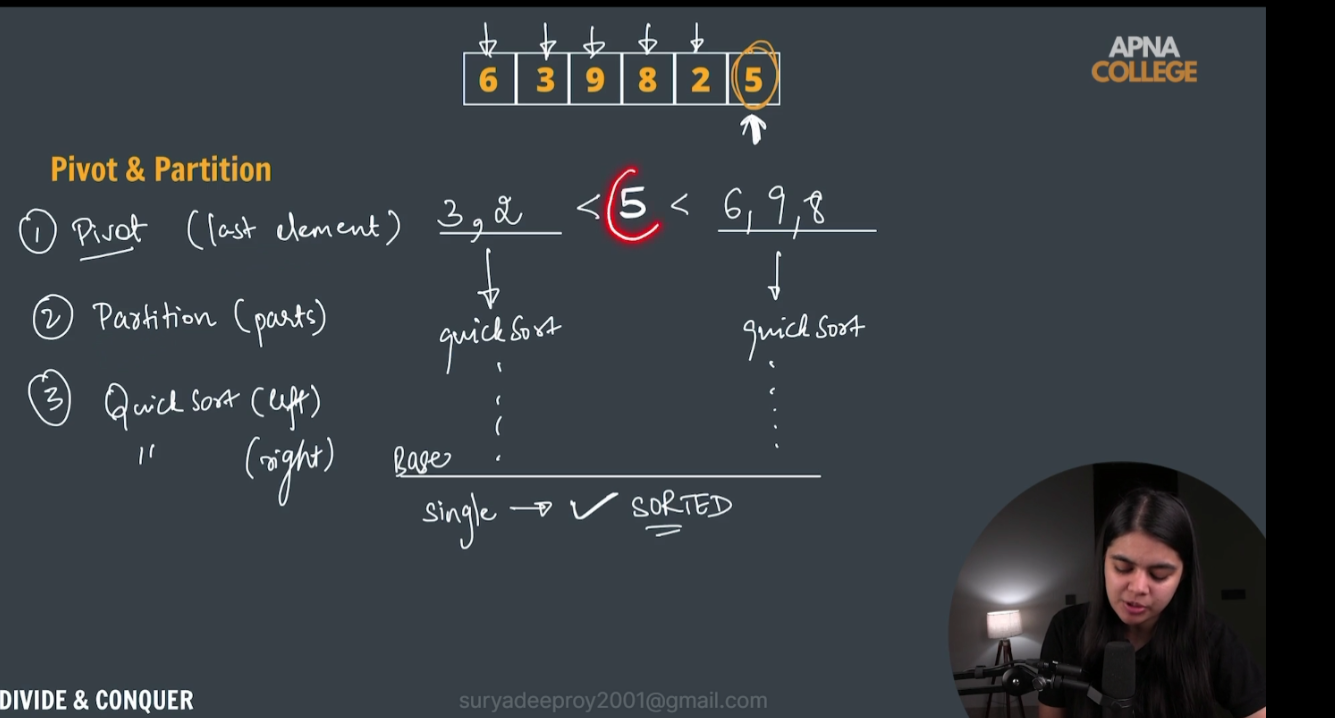 6 3 9 8 2 5
APNA
COLLEGE
Pivot & Partition
① Pivot (last element) 3, 2 < 5 < 6, 9, 8
② Partition (parts) quick sort quick sort
③ Quick sort (left)
" (right)
Base
single → ✓ SORTED
DIVIDE & CONQUER
suryadeeproy2001@gmail.com